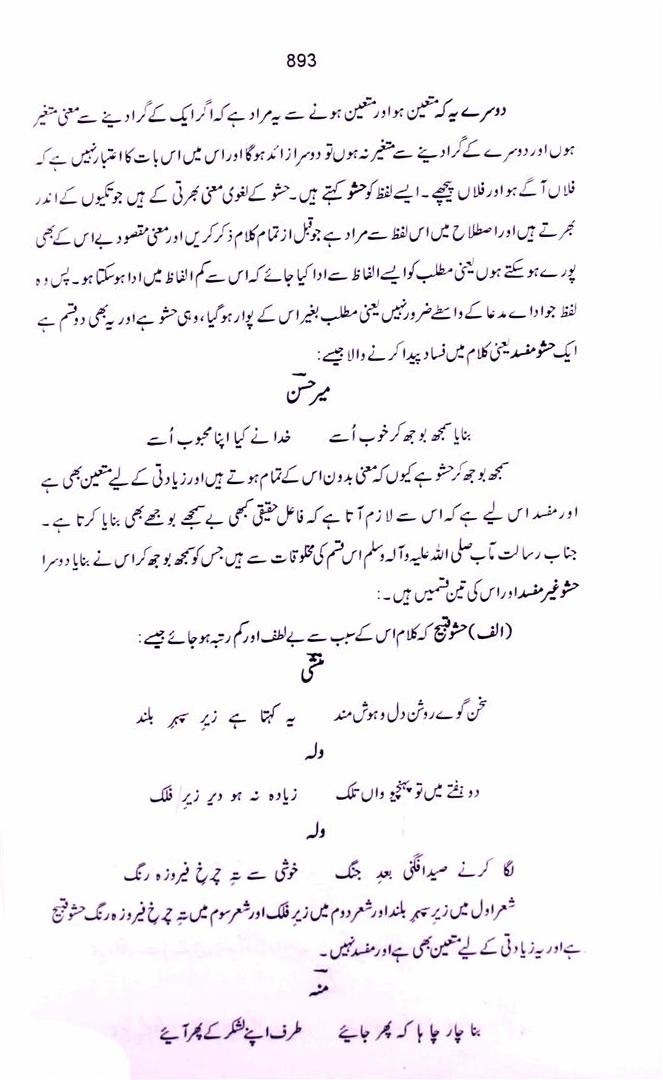 893
دوسرے یہ کہ متعین ہو اور متعین ہونے سے یہ مراد ہے کہ اگر ایک کے گرا دینے سے معنی متغیر
ہوں اور دوسرے کے گرا دینے سے متغیر نہ ہوں تو دوسرا زائد ہوگا اور اس میں اس بات کا اعتبار نہیں ہے کہ
فلاں آگے ہو اور فلاں پیچھے۔ ایسے لفظ کو حشو کہتے ہیں۔ حشو کے لغوی معنی بھرتی کے ہیں جو تکیوں کے اندر
بھرتے ہیں اور اصطلاح میں اس لفظ سے مراد ہے جو قبل از تمام کلام ذکر کریں اور معنی مقصود بے اس کے بھی
پورے ہو سکتے ہوں یعنی مطلب کو ایسے الفاظ سے ادا کیا جائے کہ اس سے کم الفاظ میں ادا ہو سکتا ہو۔ پس وہ
لفظ جو ادائے مدعا کے واسطے ضرور نہیں یعنی مطلب بغیر اس کے پوار ہو گیا، وہی حشو ہے اور یہ بھی دو قسم ہے
ایک حشو مفسد یعنی کلام میں فساد پیدا کرنے والا جیسے:
میر حسن
بنایا سمجھ بوجھ کر خوب اُسے خدا نے کیا اپنا محبوب اُسے
سمجھ بوجھ کر حشو ہے کیوں کہ معنی بدون اس کے تمام ہوتے ہیں اور زیادتی کے لیے متعین بھی ہے
اور مفسد اس لیے ہے کہ اس سے لازم آتا ہے کہ فاعل حقیقی کبھی بے سمجھے بوجھے بھی بنایا کرتا ہے۔
جناب رسالت مآب صلی اللہ علیہ وآلہ وسلم اس قسم کی مخلوقات سے ہیں جس کو سمجھ بوجھ کر اس نے بنایا دوسرا
حشو غیر مفسد اور اس کی تین قسمیں ہیں۔:
(الف) حشو قبیح کہ کلام اس کے سبب سے بے لطف اور کم رتبہ ہو جائے جیسے:
منشی
سخن گوے روشن دل و ہوش مند یہ کہتا ہے زیرِ سپہرِ بلند
ولہ
دو ہفتے میں تو پہنچیو واں تلک زیادہ نہ ہو دیر زیرِ فلک
ولہ
لگا کرنے صید افگنی بعدِ جنگ خوشی سے تہِ چرخِ فیروزہ رنگ
شعر اول میں زیرِ سپہرِ بلند اور شعر دوم میں زیرِ فلک اور شعر سوم میں تہِ چرخِ فیروزہ رنگ حشو قبیح
ہے اور یہ زیادتی کے لیے متعین بھی ہے اور مفسد نہیں۔
منہ
بنا چار چاہا کہ پھر جائیے طرف اپنے لشکر کے پھر آئیے